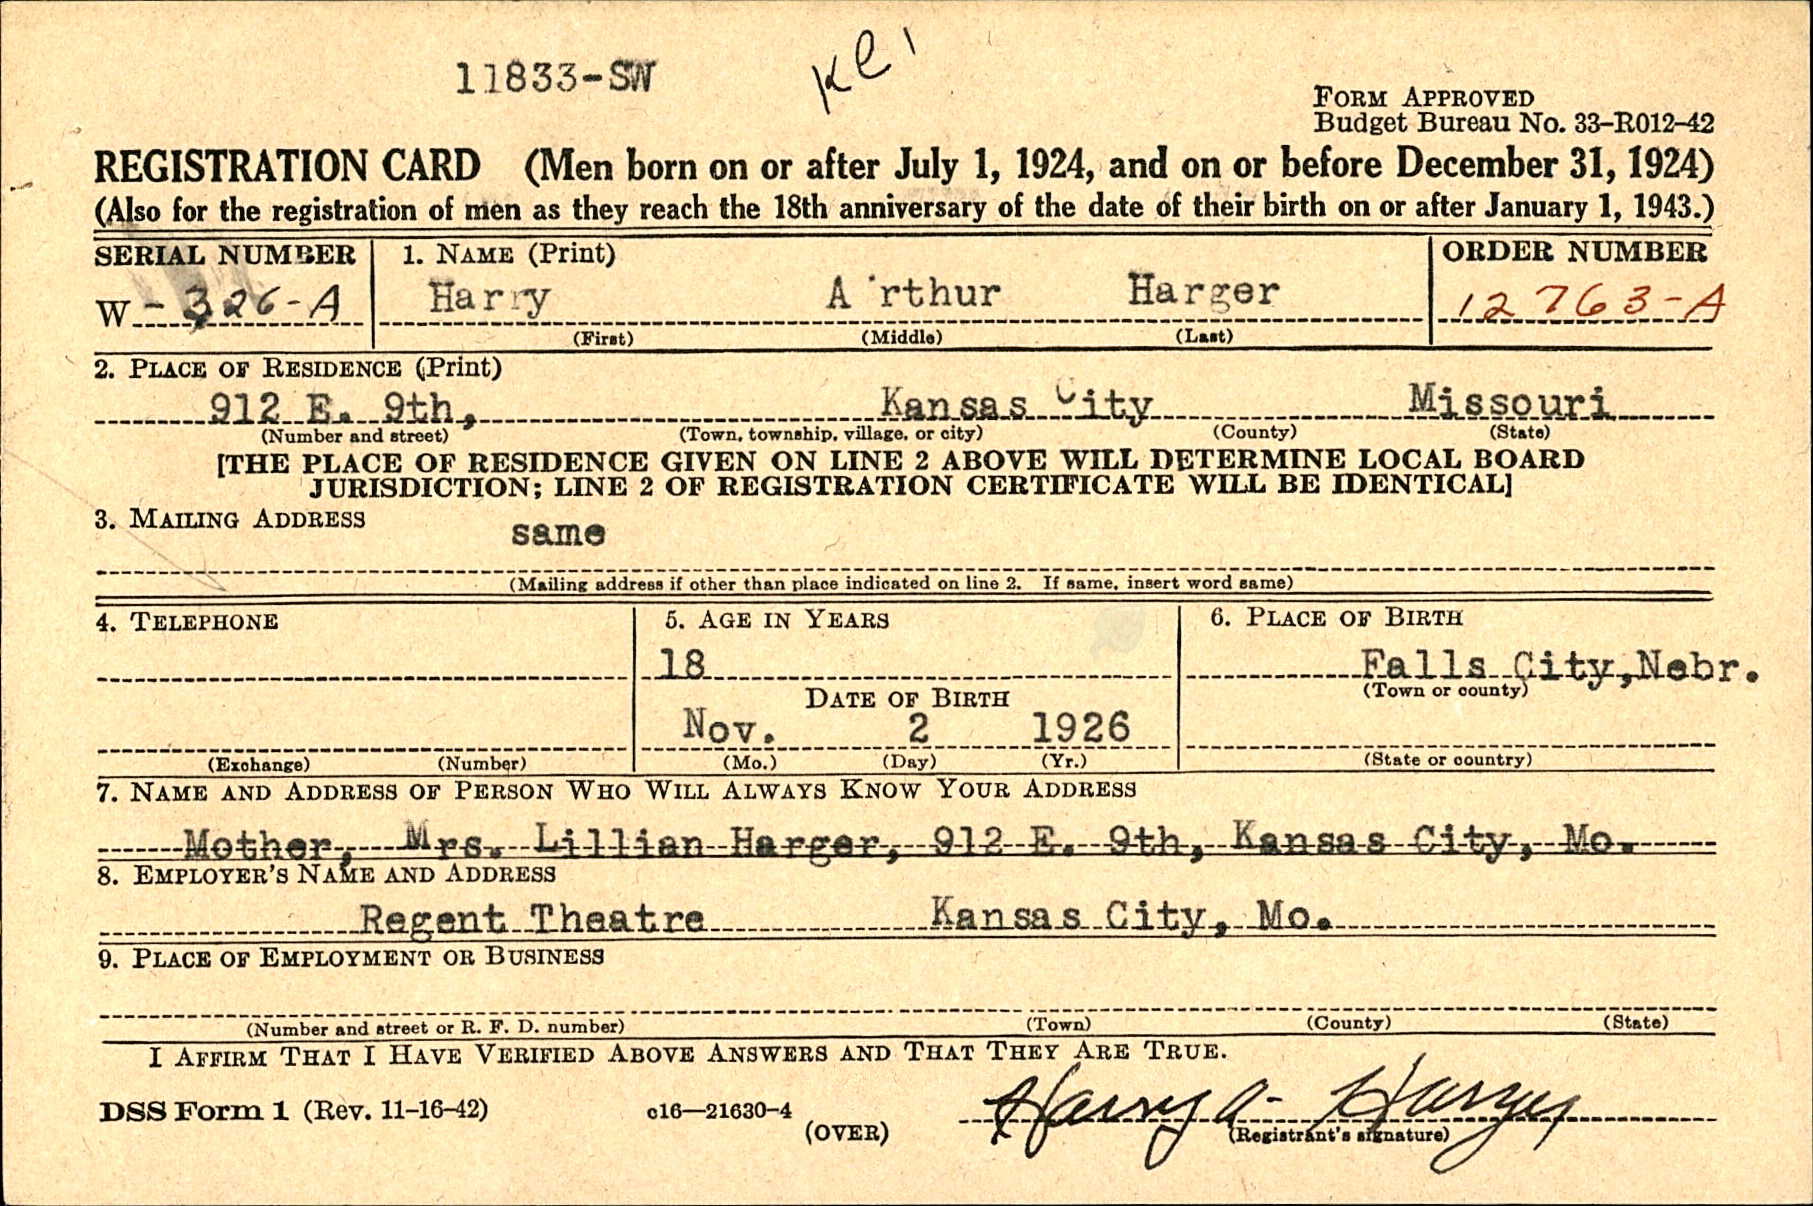 11833-SW
FORM APPROVED
Budget Bureau No. 33–R012–42
REGISTRATION CARD (Men born on or after July 1, 1924, and on or before December 31, 1924)
(Also for the registration of men as they reach the 18th anniversary of the date of their birth on or after January 1, 1943.)
SERIAL NUMBER 1. NAME (Print) ORDER NUMBER
W - 326 - A Harry Arthur Harger 12763-A
(First) (Middle) (Last)
2. PLACE OF RESIDENCE (Print)
912 E. 9th, Kansas City Missouri
(Number and street) (Town, township, village, or city) (County) (State)
[THE PLACE OF RESIDENCE GIVEN ON LINE 2 ABOVE WILL DETERMINE LOCAL BOARD
JURISDICTION; LINE 2 OF REGISTRATION CERTIFICATE WILL BE IDENTICAL]
3. MAILING ADDRESS
same
(Mailing address if other than place indicated on line 2. If same, insert word same)
4. TELEPHONE 5. AGE IN YEARS 6. PLACE OF BIRTH
18 Falls City, Nebr.
(Town or county)
DATE OF BIRTH
Nov. 2 1926
(Exchange) (Number) (Mo.) (Day) (Yr.) (State or country)
7. NAME AND ADDRESS OF PERSON WHO WILL ALWAYS KNOW YOUR ADDRESS
Mother, Mrs. Lillian Harger, 912 E. 9th, Kansas City, Mo.
8. EMPLOYER'S NAME AND ADDRESS
Regent Theatre Kansas City, Mo.
9. PLACE OF EMPLOYMENT OR BUSINESS
(Number and street or R. F. D. number) (Town) (County) (State)
I AFFIRM THAT I HAVE VERIFIED ABOVE ANSWERS AND THAT THEY ARE TRUE.
DSS Form 1 (Rev. 11-16-42) c16—21630-4 Harry A. Harger
(OVER) (Registrant's signature)